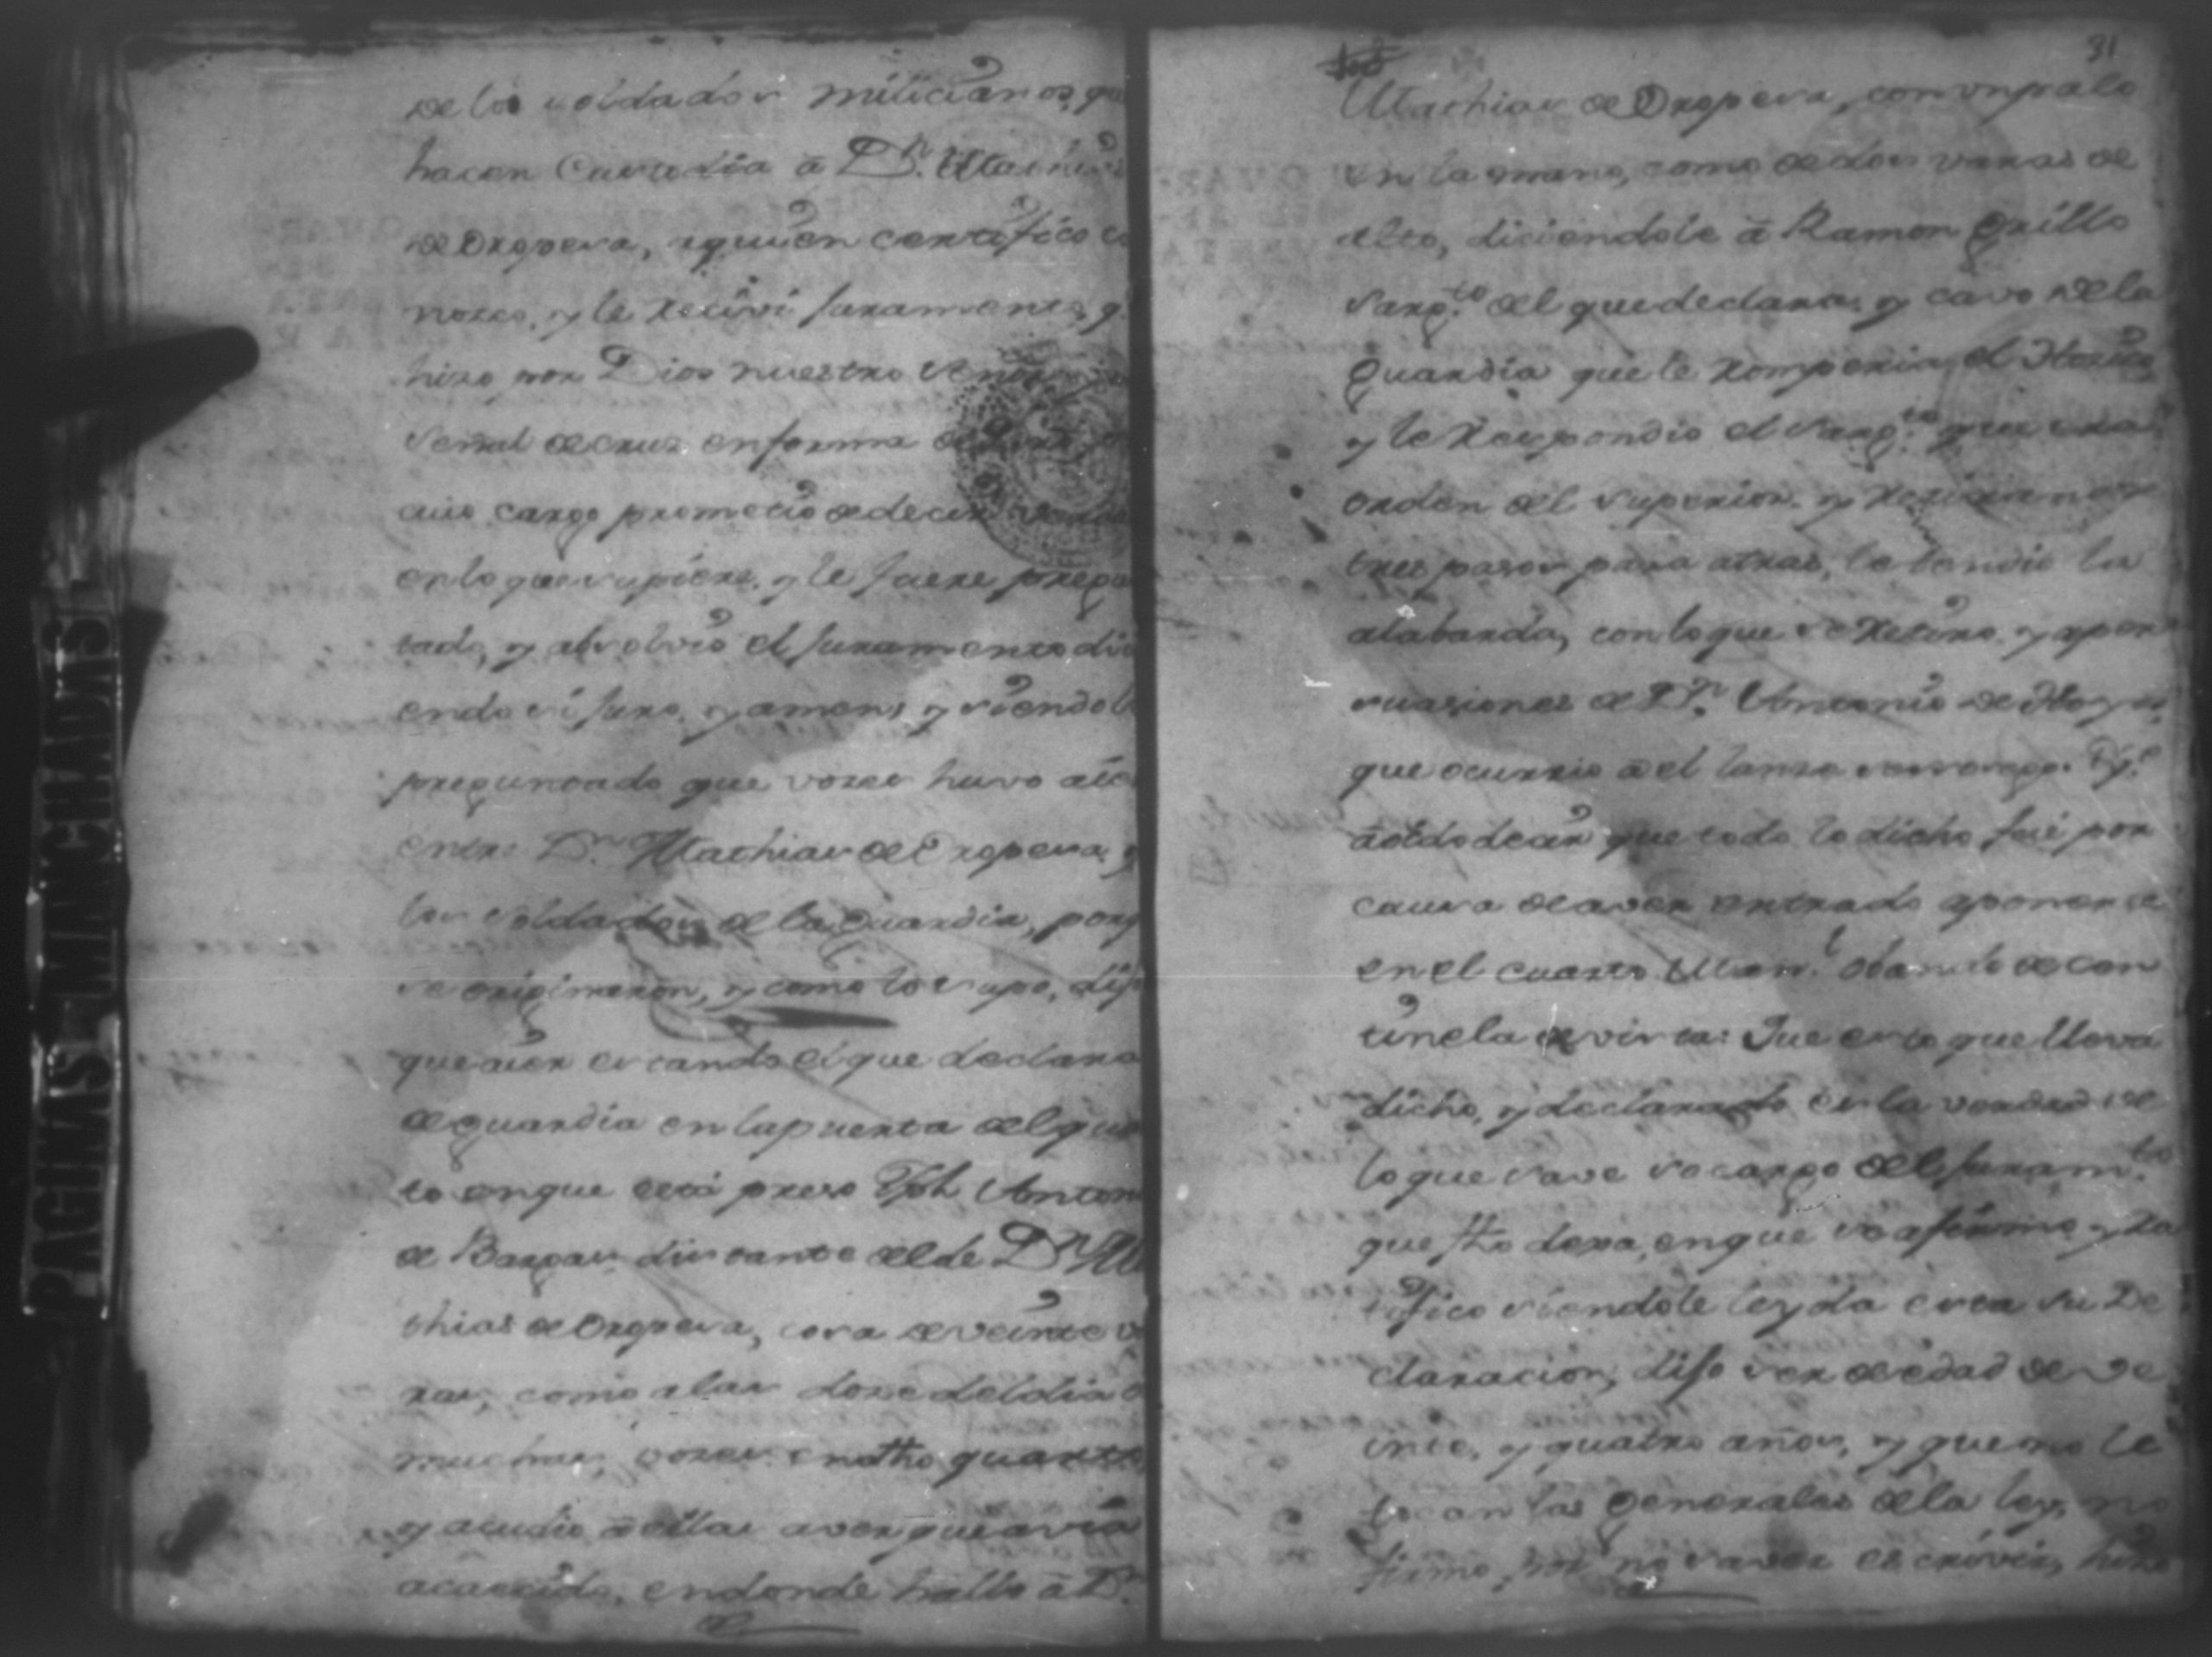 PAGINAS MANCHADAS
de los soldados milicianos, qu
hacen Custodia â Dn. Mathias
de Oropesa, a quien certifico co
nozco, y le recivi Juramento, q.
hizo por Dios nuestro Señor
señal de cruz en forma de
cuio cargo prometio de decir verdad
en lo que supiere, y le fuere pregu
tado, y absolvio el Juramento dici
endo si Juro, y amen, y siendole
preguntado que vozes huvo aier
entre Dn. Mathias de Oropesa, y
los soldados de la Guardia, porq
se originaron, y como lo supo, dijo
que aier estando el que declara
de guardia en la puerta del qua
to en que está preso Jph Anton
de Bargas distante del de Dn. Ma
thias de Oropesa, cosa de veinte v
ras, como a las doze del dia o
muchas vozes en dho quarto
y acudio â ellas a ver que avia
acaecido, en donde hallo â Dn.
31
Mathias de Oropesa, con un palo
en la mano, como de dos varas de
alto, diciendole â Ramon Grillo
Sarg.to del que declara, y cavo de la
Guardia que le romperia el
y le respondio el Sarg.to que era
orden del superior, y
tres pasos para atras, le tendio la
alabarda, con lo que se retiro, y a per
suasiones de Dn. Antonio de
que ocurrio â el lanze
â oido decir que todo lo dicho fué por
causa de aver entrado a ponerse
en el cuarto Man.l Obando de cen
tinela de vista: Que esto que lleva
dicho, y declarado es la verdad de
lo que save so cargo del Juram.to
que fho dexa, en que se afirmo y ra
tifico siendole leyda esta su De
claracion, dijo ser de edad de ve
inte, y quatro años, y que no le
tocan las Generales de la ley, no
firmo por no saver escrivir, hizo